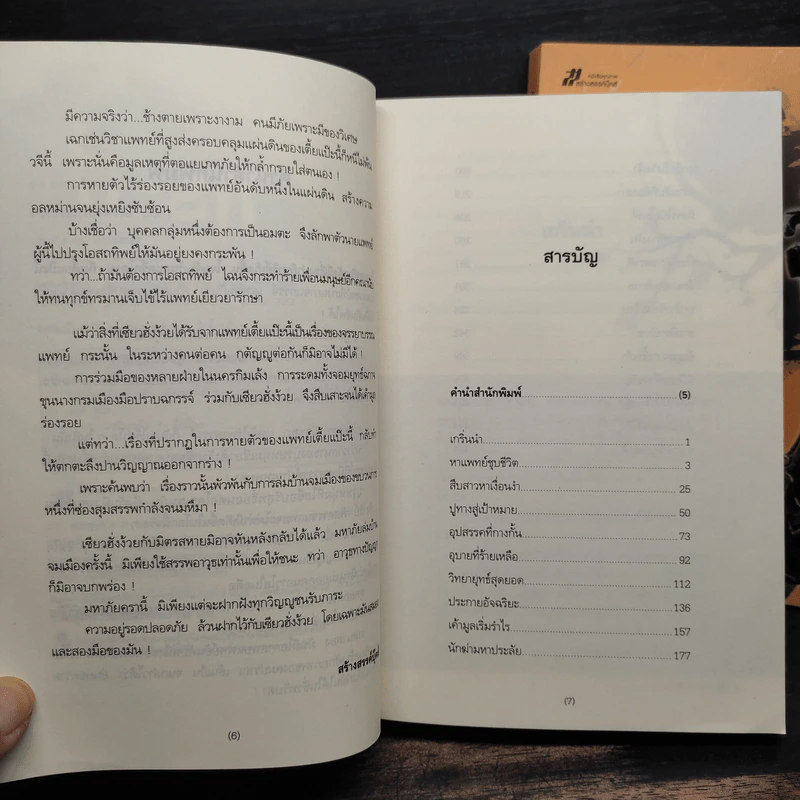 มีความจริงว่า...ช้างตายเพราะงางาม คนมีภัยเพราะมีของวิเศษ
เฉกเช่นวิชาแพทย์ที่สูงส่งครอบคลุมแผ่นดินของเตี้ยแป๊ะนี้ก็หนีไม่พ้น
วจีนี้ เพราะนั่นคือมูลเหตุที่ตอแยเภทภัยให้กล้ำกรายใส่ตนเอง !
การหายตัวไร้ร่องรอยของแพทย์อันดับหนึ่งในแผ่นดิน สร้างความ
อลหม่านจนยุ่งเหยิงซับซ้อน
บ้างเชื่อว่า บุคคลกลุ่มหนึ่งต้องการเป็นอมตะ จึงลักพาตัวนายแพทย์
ผู้นี้ไปปรุงโอสถทิพย์ให้มันอยู่ยงคงกระพัน !
ทว่า...ถ้ามันต้องการโอสถทิพย์ ไฉนจึงกระทำร้ายเพื่อนมนุษย์อีก
ให้ทนทุกข์ทรมานเจ็บไข้ไร้แพทย์เยียวยารักษา
แม้ว่าสิ่งที่เซียวฮั่งง้วยได้รับจากแพทย์เตี้ยแป๊ะนี้เป็นเรื่องของจรรยาบรรณ
แพทย์ กระนั้น ในระหว่างคนต่อคน กตัญญูต่อกันก็มิอาจไม่มีได้ !
การร่วมมือของหลายฝ่ายในนครกิมเล้ง การระดมทั้งจอมยุทธ์
ขุนนางกรมเมืองมือปราบฉกรรจ์ ร่วมกับเซียวฮั่งง้วย จึงสืบเสาะจนได้
ร่องรอย
แต่ทว่า...เรื่องที่ปรากฏในการหายตัวของแพทย์เตี้ยแป๊ะนี้
ให้ตกตะลึงปานวิญญาณออกจากร่าง !
เพราะค้นพบว่า เรื่องราวนั้นพัวพันกับการล่มบ้านจมเมืองของขบวนการ
หนึ่งที่ซ่องสุมสรรพกำลังจนมหึมา !
เซียวฮั่งง้วยกับมิตรสหายมิอาจหันหลังกลับได้แล้ว มหาภัยล่มบ้าน
จมเมืองครั้งนี้ มิเพียงใช้สรรพอาวุธเท่านั้นเพื่อให้ชนะ ทว่า อาวุธทางปัญญา
ก็มิอาจบกพร่อง !
มหาภัยครานี้ มิเพียงแต่จะฝากฝังทุกวิญญูชนรับภาระ
ความอยู่รอดปลอดภัย ล้วนฝากไว้กับเซียวฮั่งง้วย โดยเฉพาะ
และสองมือของมัน !
สร้างสรรค์บุ๊คส์
(6)
สร้างสรรค์บุ๊คส์
สารบัญ
คำนำสำนักพิมพ์ (5)
เกริ่นนำ 1
หาแพทย์ชุบชีวิต 3
สืบสาวหาเงื่อนงำ 25
ปูทางสู่เป้าหมาย 50
อุปสรรคที่กางกั้น 73
อุบายที่ร้ายเหลือ 92
วิทยายุทธ์สุดยอด 112
ประกายอัจฉริยะ 136
เค้ามูลเริ่มรำไร 157
นักฆ่ามหาประลัย 177
(7)